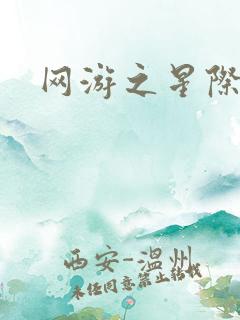 网游之星際
西安-温州
未经同意禁止转载